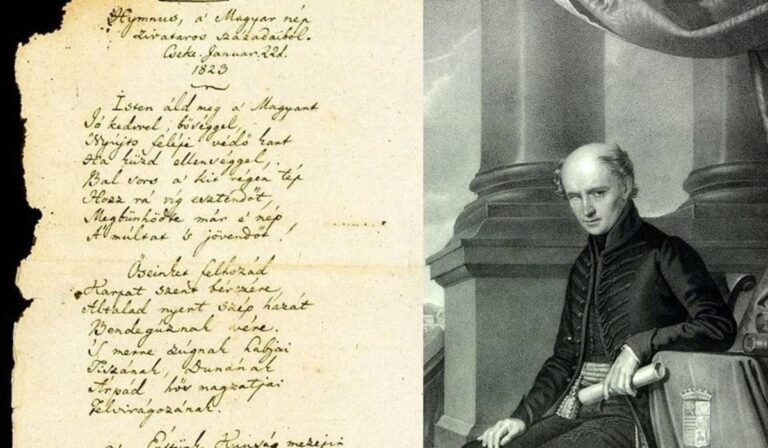 Hymnus, a' Magyar nép
zivataros századaiból.
Cseke. Januar. 22d.
1823
Isten áld meg a' Magyart
Jó kedvvel, bőséggel,
Nyújts feléje védő kart
Ha küzd ellenséggel;
Bal sors a' kit régen tép
Hozz rá víg esztendőt,
Megbünhödte már e' nép
A' múltat 's jövendőt!
Őseinket felhozád
Kárpát szent bérczére,
Általad nyert szép hazát
Bendegúznak vére.
'S merre zúgnak habjai
Tiszának, Dunának
Árpád hős magzatjai
Felvirágozának.
Értünk Kunság mezején